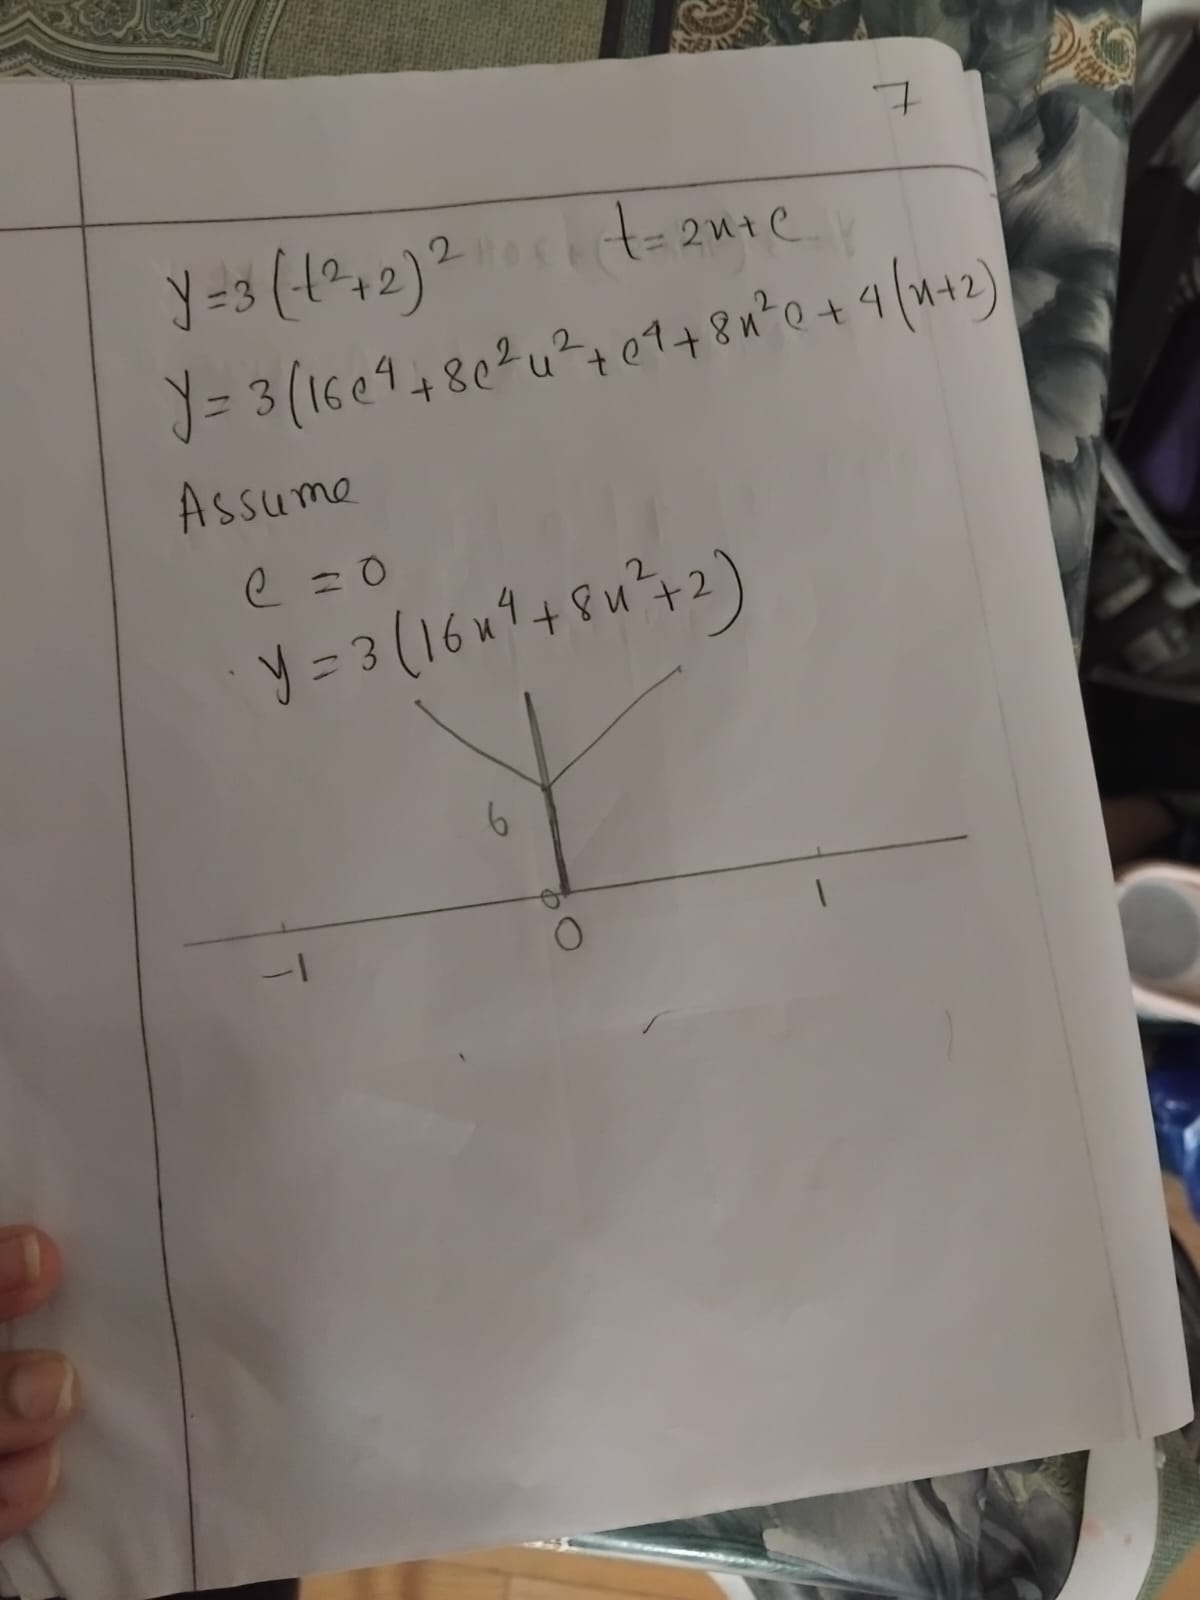 7
y=3(t²+2)² t=2x+c
y=3(16c⁴+8c²x²+c⁴+8x²c+4(x+2)
Assume
c=0
y=3(16x⁴+8x²+2)
6
0
-1 0 1